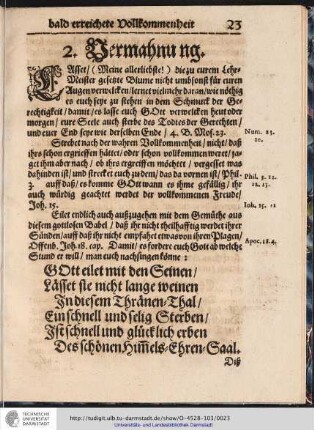 bald erreichete Vollkommenheit 23
2. Vermahnung.
LAsset / (Meine allerliebste!) die zu eurem Lehr-
Meister gesetzte Blume nicht umbsonst für euren
Augen verwelcken / lernet vielmehr daran / wie nöthig
es euch seye zu stehen in dem Schmuck der Ge-
rechtigkeit / damit / es lasse euch GOtt verwelcken heut oder
morgen / eure Seele auch sterbe des Todtes der Gerechten /
und euer End seye wie derselben Ende / 4. B. Mos. 23.
Num. 23.
10.
Strebet nach der wahren Vollkommenheit / nicht / daß
ihrs schon ergriffen hättet / oder schon vollkommen weret / ja-
get ihm aber nach / ob ihrs ergreiffen möchtet / vergesset was
dahinden ist / und strecket euch zu dem / das da vornen ist / Phil.
3. auff daß / es komme GOtt wann es ihme gefällig / ihr
auch würdig geachtet werdet der vollkommenen Freude /
Joh. 15.
Phil. 3. 12.
12. 13.
Joh. 15. 11
Eilet endlich auch außzugehen mit dem Gemüthe aus
diesem gottlosen Babel / daß ihr nicht theilhafftig werdet ihrer
Sünden / auff daß ihr nicht empfahet etwas von ihren Plagen /
Offenb. Joh. 18. cap. Damit / es fordere euch Gott ab welche
Stund er will / man euch nachsingen könne:
Apoc. 18. 4.
GOtt eilet mit den Seinen /
Lässet sie nicht lange weinen
In diesem Thränen-Thal /
Ein schnell und selig Sterben /
Ist schnell und glücklich erben
Des schönen Himmels-Ehren-Saal.
Diß
TECHNISCHE
UNIVERSITÄT
DARMSTADT
http://tudigit.ulb.tu-darmstadt.de/show/O-4528-101/0023
Universitäts- und Landesbibliothek Darmstadt